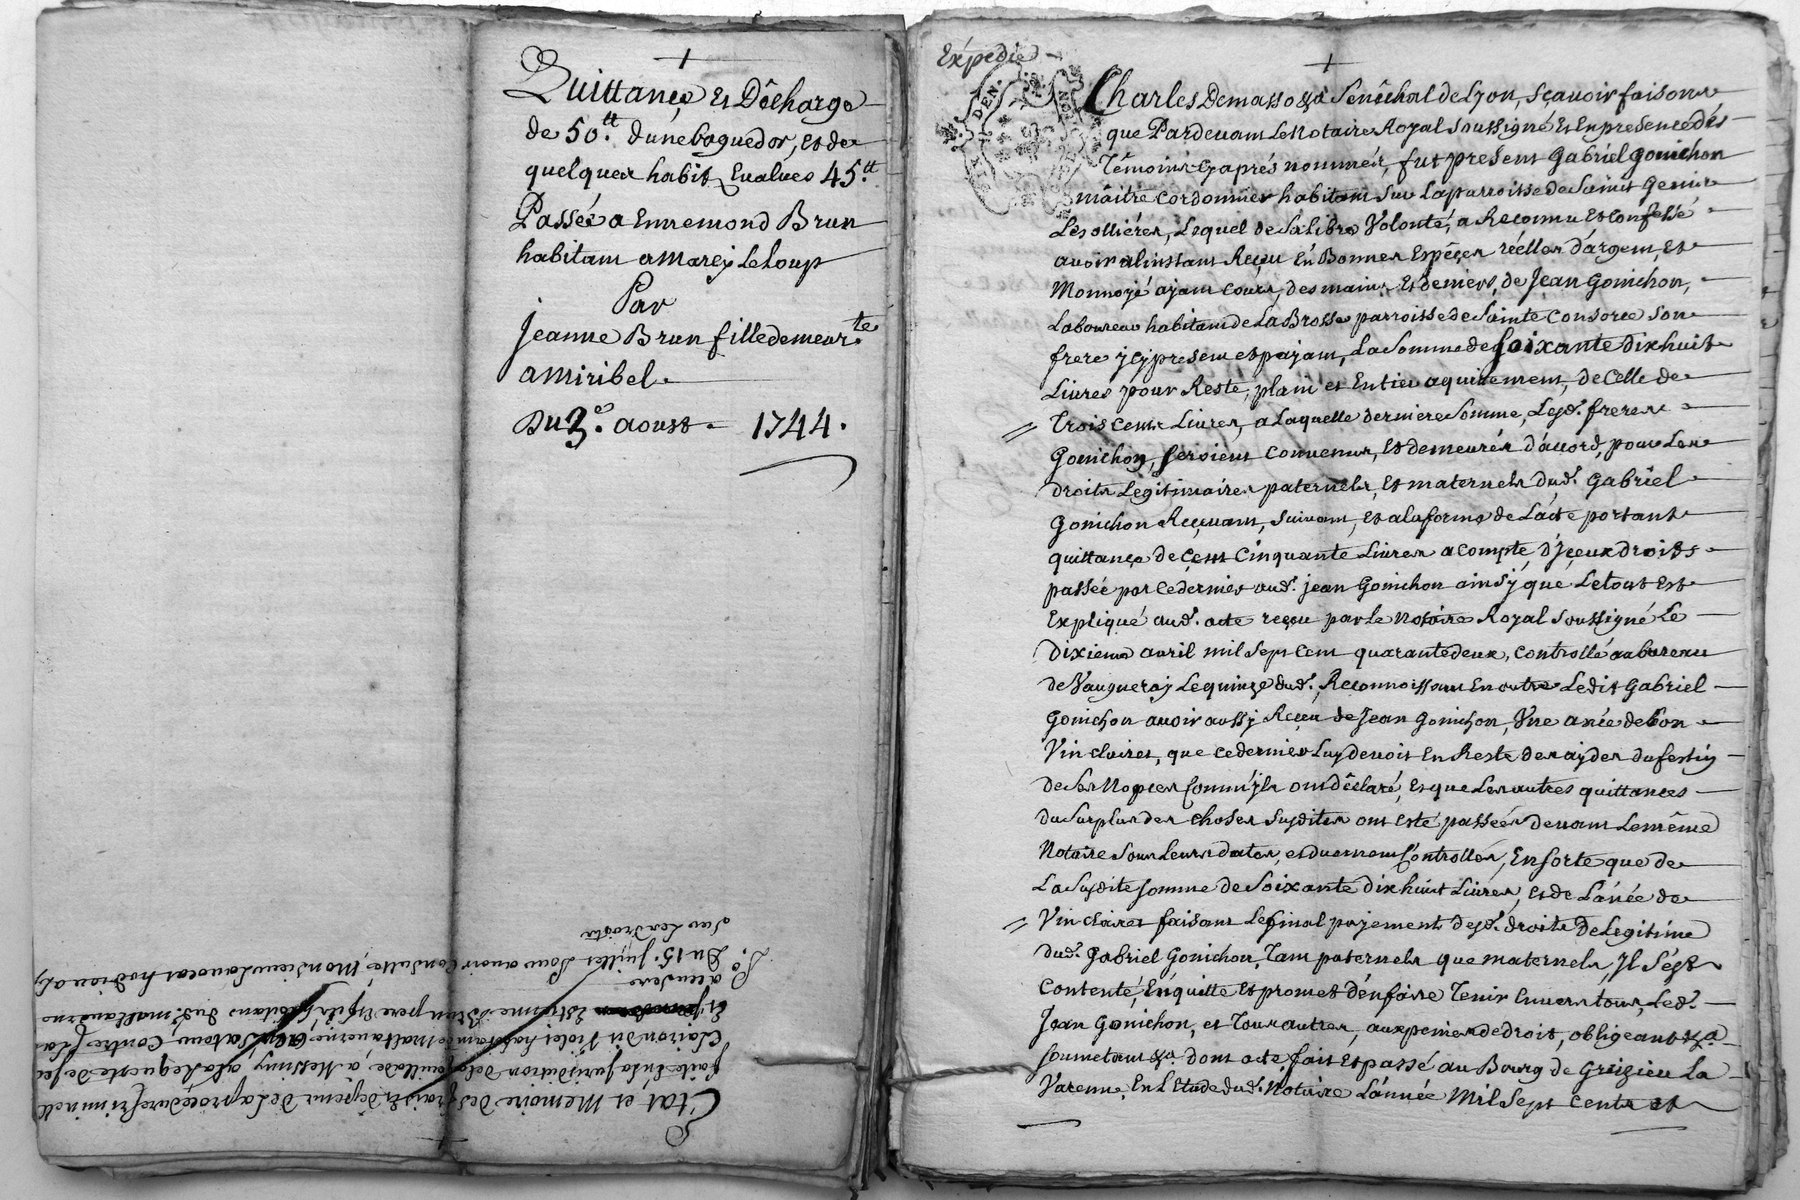 Quittançe et Décharge
de 50.tt d'une bague d'or, et de
quelques habits Evalués 45.tt
Passée a Ennemond Brun
habitant a Marcy Le Loup
Par
Jeanne Brun fille demeur.te
a Miribel.
Du 3.e aoust 1744.
Sur Les Droits
Du 15.e juillet pour avoir Consulté, Monsieur Lavocat hodieu
a deu Sere
Estienne Brun pere & fils habitans dud. maltaverne
Clairon dit Violet habitant de Maltaverne, Contre
faite En la Jurisdiction de la pouillade, a Messimy a la Requeste de
Etat et Memoire des frais & dépens De La procédure Criminelle
Expedié
Charles Demasso &a Senéchal de Lyon, Sçavoir faisons
que Pardevant Le Notaire Royal Soussigné Et En presence dés
Témoins Cy aprés nommés, fut present Gabriel Gonichon
maitre Cordonnier habitant Sur La parroisse de Saint Genis
Les ollières, Lequel de Sa libre Volonté, a Reconnu et Confessé
avoir a l'instant Reçeu En Bonnes Espéçes réelles d'argent, et
Monnoyé ayant Cours, des mains et deniers, de Jean Gonichon,
Laboureur habitant de La Brosse parroisse de Sainte Consorce Son
frere ycy present et payant, La Somme de Soixante dix huit
Livres pour Reste, plain et Entier aquitement, de Celle de
Trois Cents Livres, a Laquelle derniere Somme, Lesd. freres
Gonichon, Seroient Convenus, Et demeurés d'accord, pour Les
droits Légitimaires paternels, Et maternels dud. Gabriel
Gonichon Reçevant, Suivant, Et a la forme de L'acte portant
quittançe de Cent Cinquante Livres a Compte, d'yçeux droits
passée par Ce dernier aud. Jean Gonichon ainsy que Le tout Est
Expliqué aud. acte reçeu par Le Notaire Royal Soussigné Le
dixieme avril mil Sept Cent quarante deux, Controllé au bureau
de Vaugneray Le quinze dud., Reconnoissant En outre Ledit Gabriel
Gonichon avoir aussy Reçeu de Jean Gonichon, Une anée de bon
Vin Clairet, que Ce dernier Luy devoit En Reste des aydes du festin
de Ses Nopces Comm'yls ont déclaré, Et que Les autres quittances
du Surplus des Choses Susdites ont Esté passées devant Le même
Notaire Sous Leurs dates, et duement Controllés, En Sorte que de
La Susdite Somme de Soixante dix huit Livres, et de L'anée de
Vin Clairet faisant Le final payement desd. droits De Legitime
dud. Gabriel Gonichon, Tant paternels que maternels, Yl S'est
Contenté, En quitte Et promet d'en faire Tenir Envers tous, Led.
Jean Gonichon, et Tous autres, aux peines de droit, obligeant &a
Soumetant &a dont acte, fait Et passé au Bourg de Grézieu La
Varenne, En L'étude dud. Notaire L'année Mil Sept Cents Et